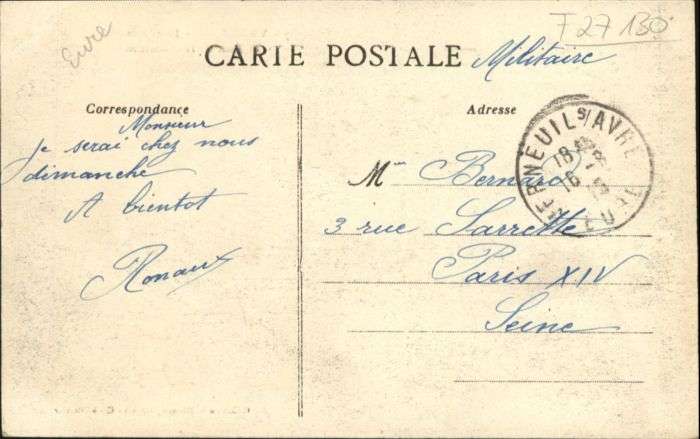 Eure
F27130
CARTE POSTALE Militaire
Correspondance
Monsieur
je serai chez nous
dimanche
A bientot
Ronaux
Adresse
Mr Bernard
3 rue Sarrette
Paris XIV
Seine
VERNEUIL S/AVRE
EURE